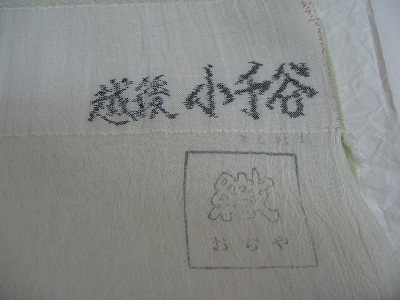 越後 小千谷
織
おぢや